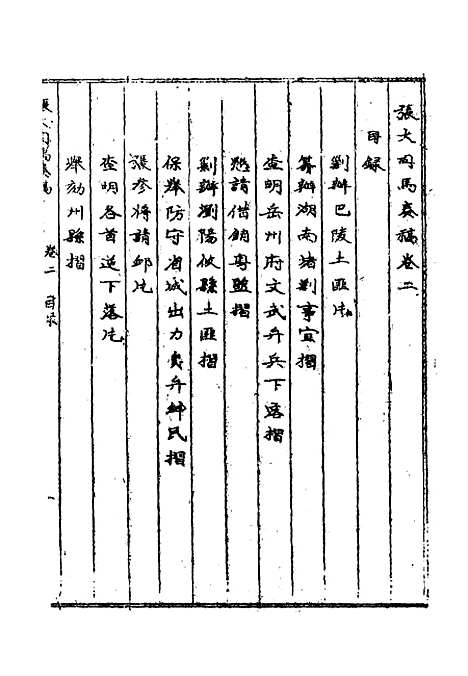 張大司馬奏稿卷二
目録
剿辦巴陵土匪片
籌辦湖南堵剿事宜摺
查明岳州府文武弁兵下落摺
懇請借銷粤鹽摺
剿辦瀏陽攸縣土匪摺
保舉防守省城出力員弁紳民摺
張參將請卹片
查明各首逆下落片
舉劾州縣摺
張大司馬奏稿 卷二 目录 一